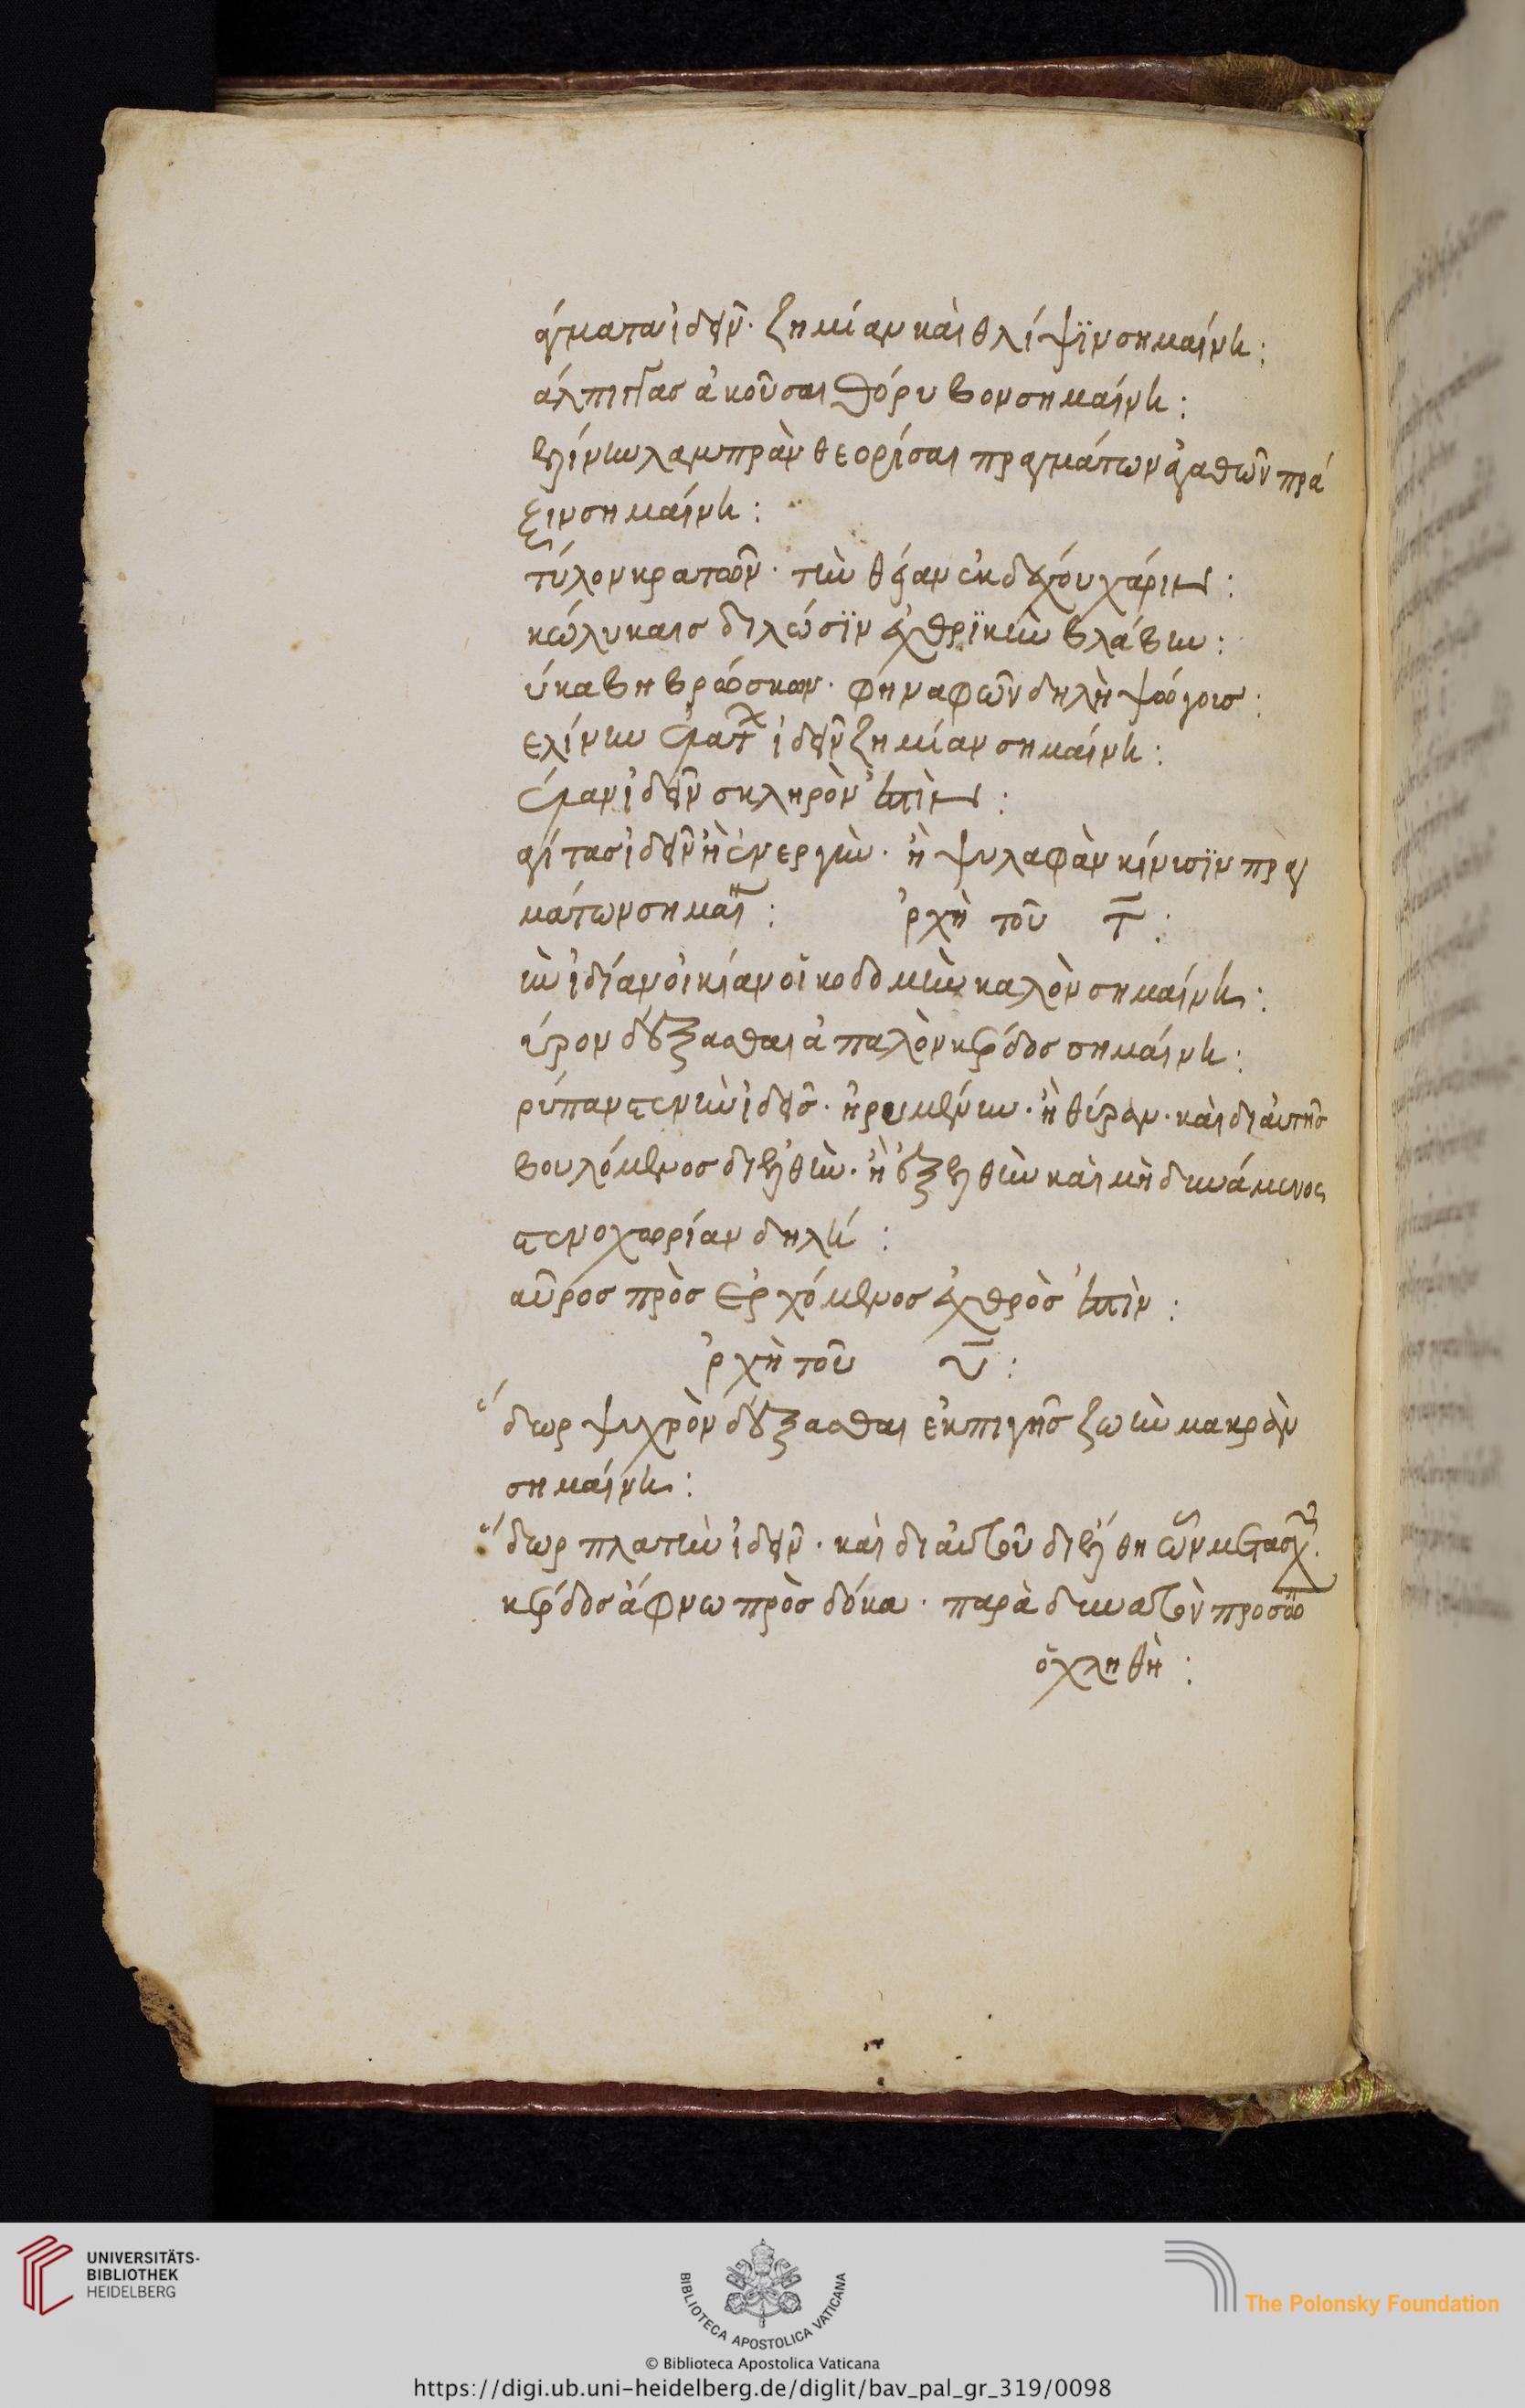 άγματα ἰδεῖν· ζημίαν καὶ θλίψϊν σημαίνει:
άλπιγγας ἀκοῦσαι θόρυβον σημαίνει:
ελίνην λαμπρὰν θεορίσαι πραγμάτων ἀγαθῶν πρά
ξιν σημαίνει:
τύλον κρατοῶν· τὴν θέαν ἐκδέχου χάριν:
κώλυκας διλώσϊν ἐχθρϊκὴν βλάβην:
ύκα βηβρώσκων· φηναφῶν δηλὴ ψώγοις:
ελίνην ἰδεῖν ζημίαν σημαίνει:
ἰδεῖν σκληρὸν ἐστὶν:
αγίτας ἰδεῖν ἢ ἐνεργὴν· ἢ ψυλαφὰν κίνισϊν πραγ
μάτων σημαίνει: ἀρχὴ τοῦ τ̅:
ὴν ἰδίαν οἰκίαν οἰκοδομὴν καλὸν σημαίνει:
ύρον δέξασθαι ἁπαλὸν κέρδος σημαίνει:
ρύπαν στενὴν ἰδεῖς· ἢ θύραν· καὶ δι αὐτῆς
βουλόμενος διελθὴν· ἢ ἐξελθὴν καὶ μὴ δυνάμενος
στενοχωρίαν δηλεί:
αῦρος πρὸς ἐρχόμενος ἐχθρὸς ἐστὶν:
ρχὴ τοῦ υ̅:
ὕδωρ ψυχρὸν δέξασθαι ἐκ πιγῆς ζωὴν μακρὰν
σημαίνει:
ὕδωρ πλατὴν ἰδεῖν· καὶ δι αὐτοῦ διέλθη
κέρδος ἄφνω πρὸς δόκα· παρὰ δυνατὸν προσ
όχληθὴ:
UNIVERSITÄTS-
BIBLIOTHEK
HEIDELBERG
BIBLIOTECA APOSTOLICA VATICANA
The Polonsky Foundation
© Biblioteca Apostolica Vaticana
https://digi.ub.uni-heidelberg.de/diglit/bav_pal_gr_319/0098